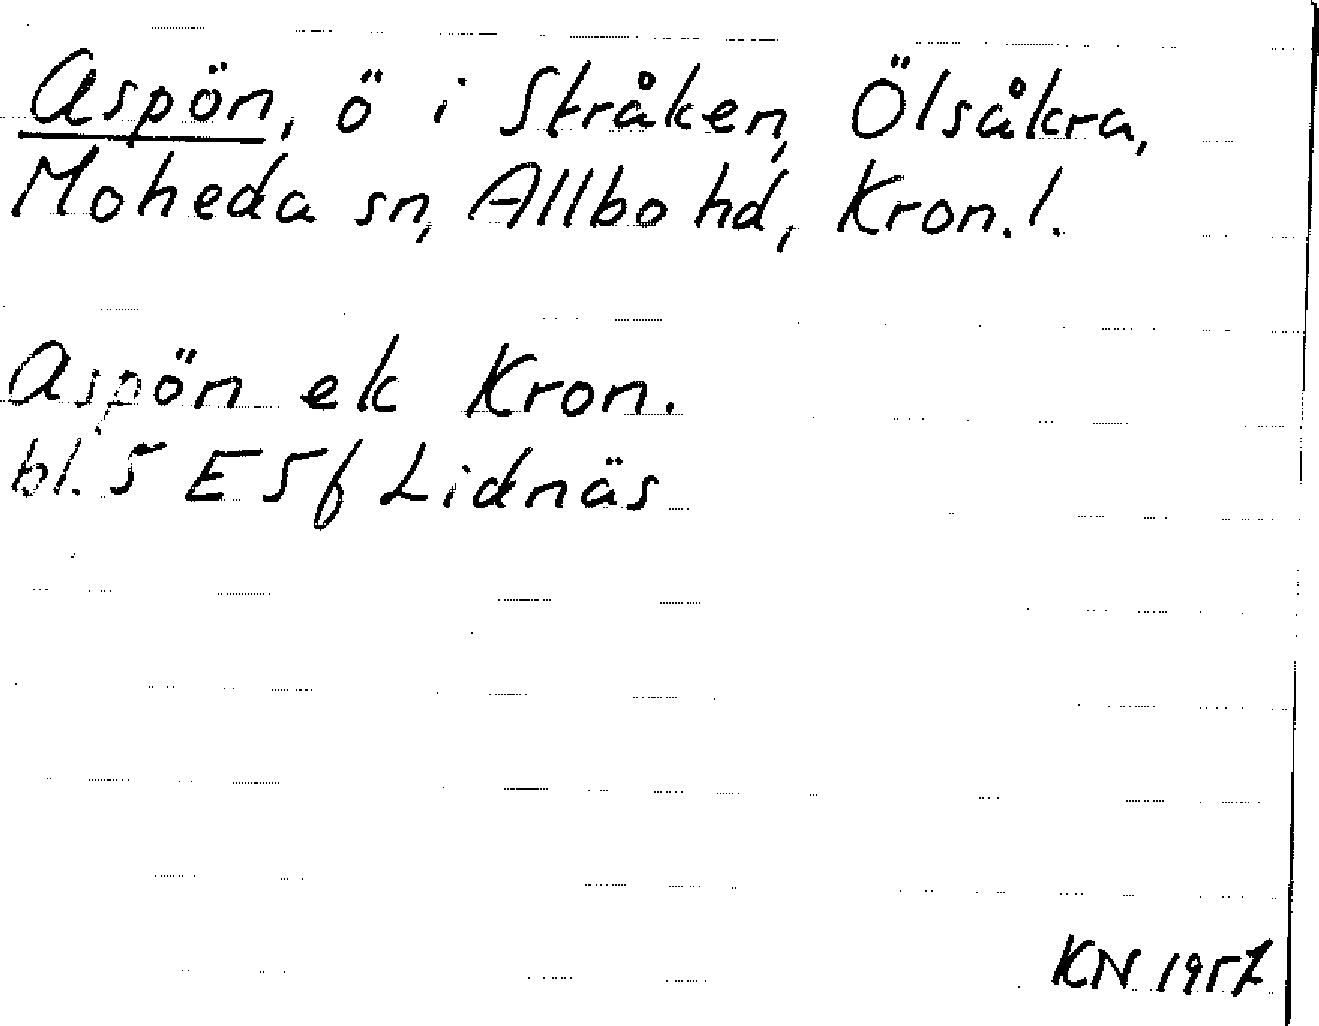 Aspön, ö i Stråken, Ölsåkra,
Moheda sn, Allbo hd, Kron.l.
Aspön ek Kron.
bl. 5 E 5f Lidnäs
KN 1957